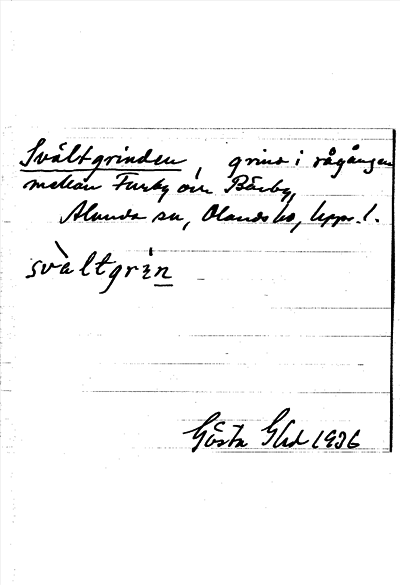 Svältgrinden, grind i rågången
mellan Furby och Bärby,
Alunda sn, Olands hd, Uppr. l.
svàltgrin
Gösta Glad 1926